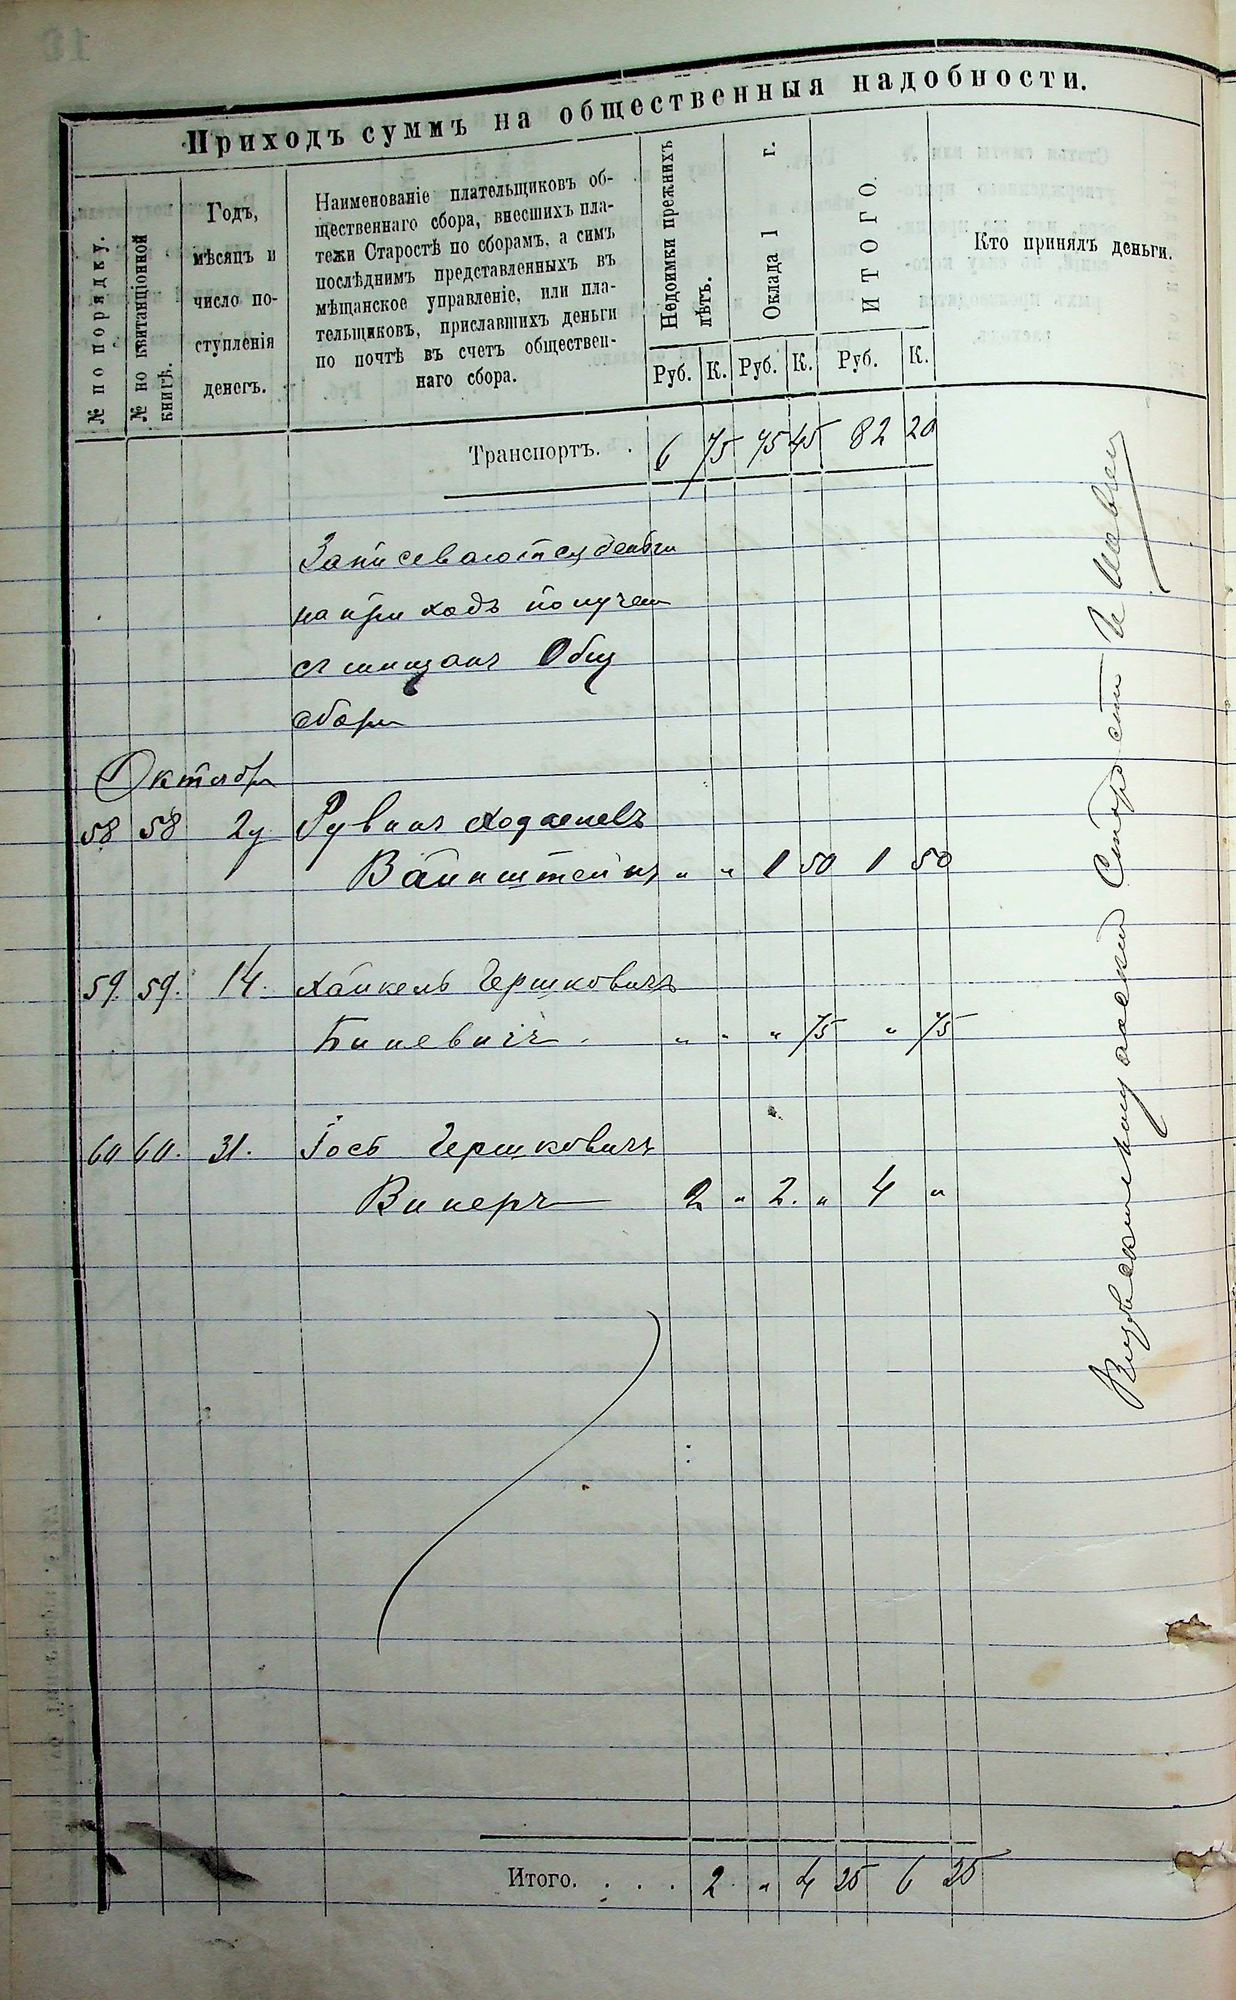 Приходъ суммъ на общественныя надобности.
№ по порядку.
№ по квитанціонной
книгѣ.
Годъ,
мѣсяцъ и
число по-
ступленія
денегъ.
Наименованіе плательщиковъ об-
щественнаго сбора, внесшихъ пла-
тежи Старостѣ по сборамъ, а симъ
послѣднимъ представленныхъ въ
мѣщанское управленіе, или пла-
тельщиковъ, приславшихъ деньги
по почтѣ въ счетъ обществен-
наго сбора.
Недоимки прежнихъ
лѣтъ.
Оклада 1 г.
ИТОГО.
Кто принялъ деньги.
Руб. К. Руб. К. Руб. К.
Транспортъ. . 6 75 75 45 82 20
Записеваются деньги
на приходъ получен
съ мищанъ Общ
сбори
Октябр
58 58 2 Рувинъ
Вайнштейнъ " " 1 50 1 50
59. 59. 14. Хайкель Гершковичъ
Билевичъ. " " " 75 " 75
60 60. 31. Іось Гершковичъ
Винеръ 2 " 2. " 4 "
Старости
Итого. . . . 2 " 4 25 6 25